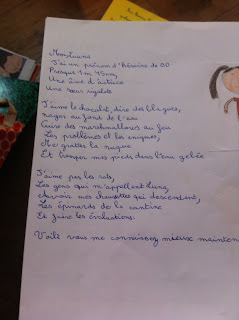 Moi, Luna
J'ai un prénom d'héroïne de BD
Presque 1m 45cm,
Une âme d'artiste
Une sœur rigolote
J'aime le chocolat, dire des blagues,
nager au fond de l'eau
Cuire des marshmallows au feu
Les problèmes et les énigmes,
Me gratter la nuque
Et tremper mes pieds dans l'eau gelée
J'aime pas les rats,
Les gens qui m'appellent Luna,
Avoir mes chaussettes qui descendent,
Les épinards de la cantine
Et faire les évaluations.
Voilà vous me connaissez mieux mainten